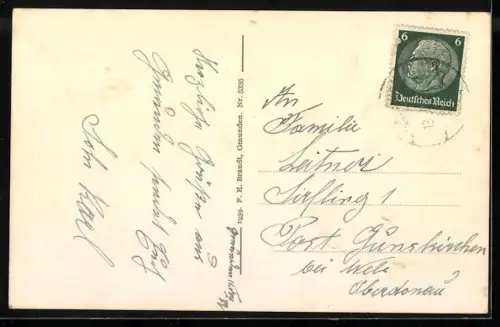 Herzliche Grüße aus
Gmunden sendet Euch
Sohn Karl
1939 F. E. Brandt, Gmunden. Nr. 5335
Gmunden
6 6
Deutsches Reich
An
Familie
Leitner
1
Post Gunskirchen
bei Wels
Oberdonau